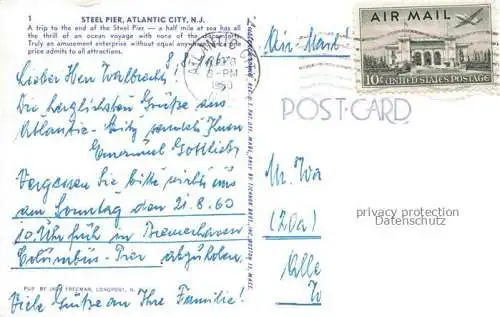 1
STEEL PIER, ATLANTIC CITY, N.J.
A trip to the end of the Steel Pier — a half mile at sea has all
the thrill of an ocean voyage with none of the
Truly an amusement enterprise without equal anywhere
price admits to all attractions.
Lieber Herr Walbrecht!
Die herzlichsten Grüße aus
Atlantic-City sendet Ihnen
Emanuel Gottlieb
Vergessen Sie bitte nicht uns
am Sonntag den 21.8.60
10. Uhr früh in Bremerhaven
Columbus-Pier abzuholen.
PUB BY FREEMAN, LONGPORT, N.
Viele Grüße an Ihre Familie!
6-PM
1960
AIR MAIL
10¢ UNITED STATES POSTAGE
POST CARD
(20a)
Alle
privacy protection
Datenschutz